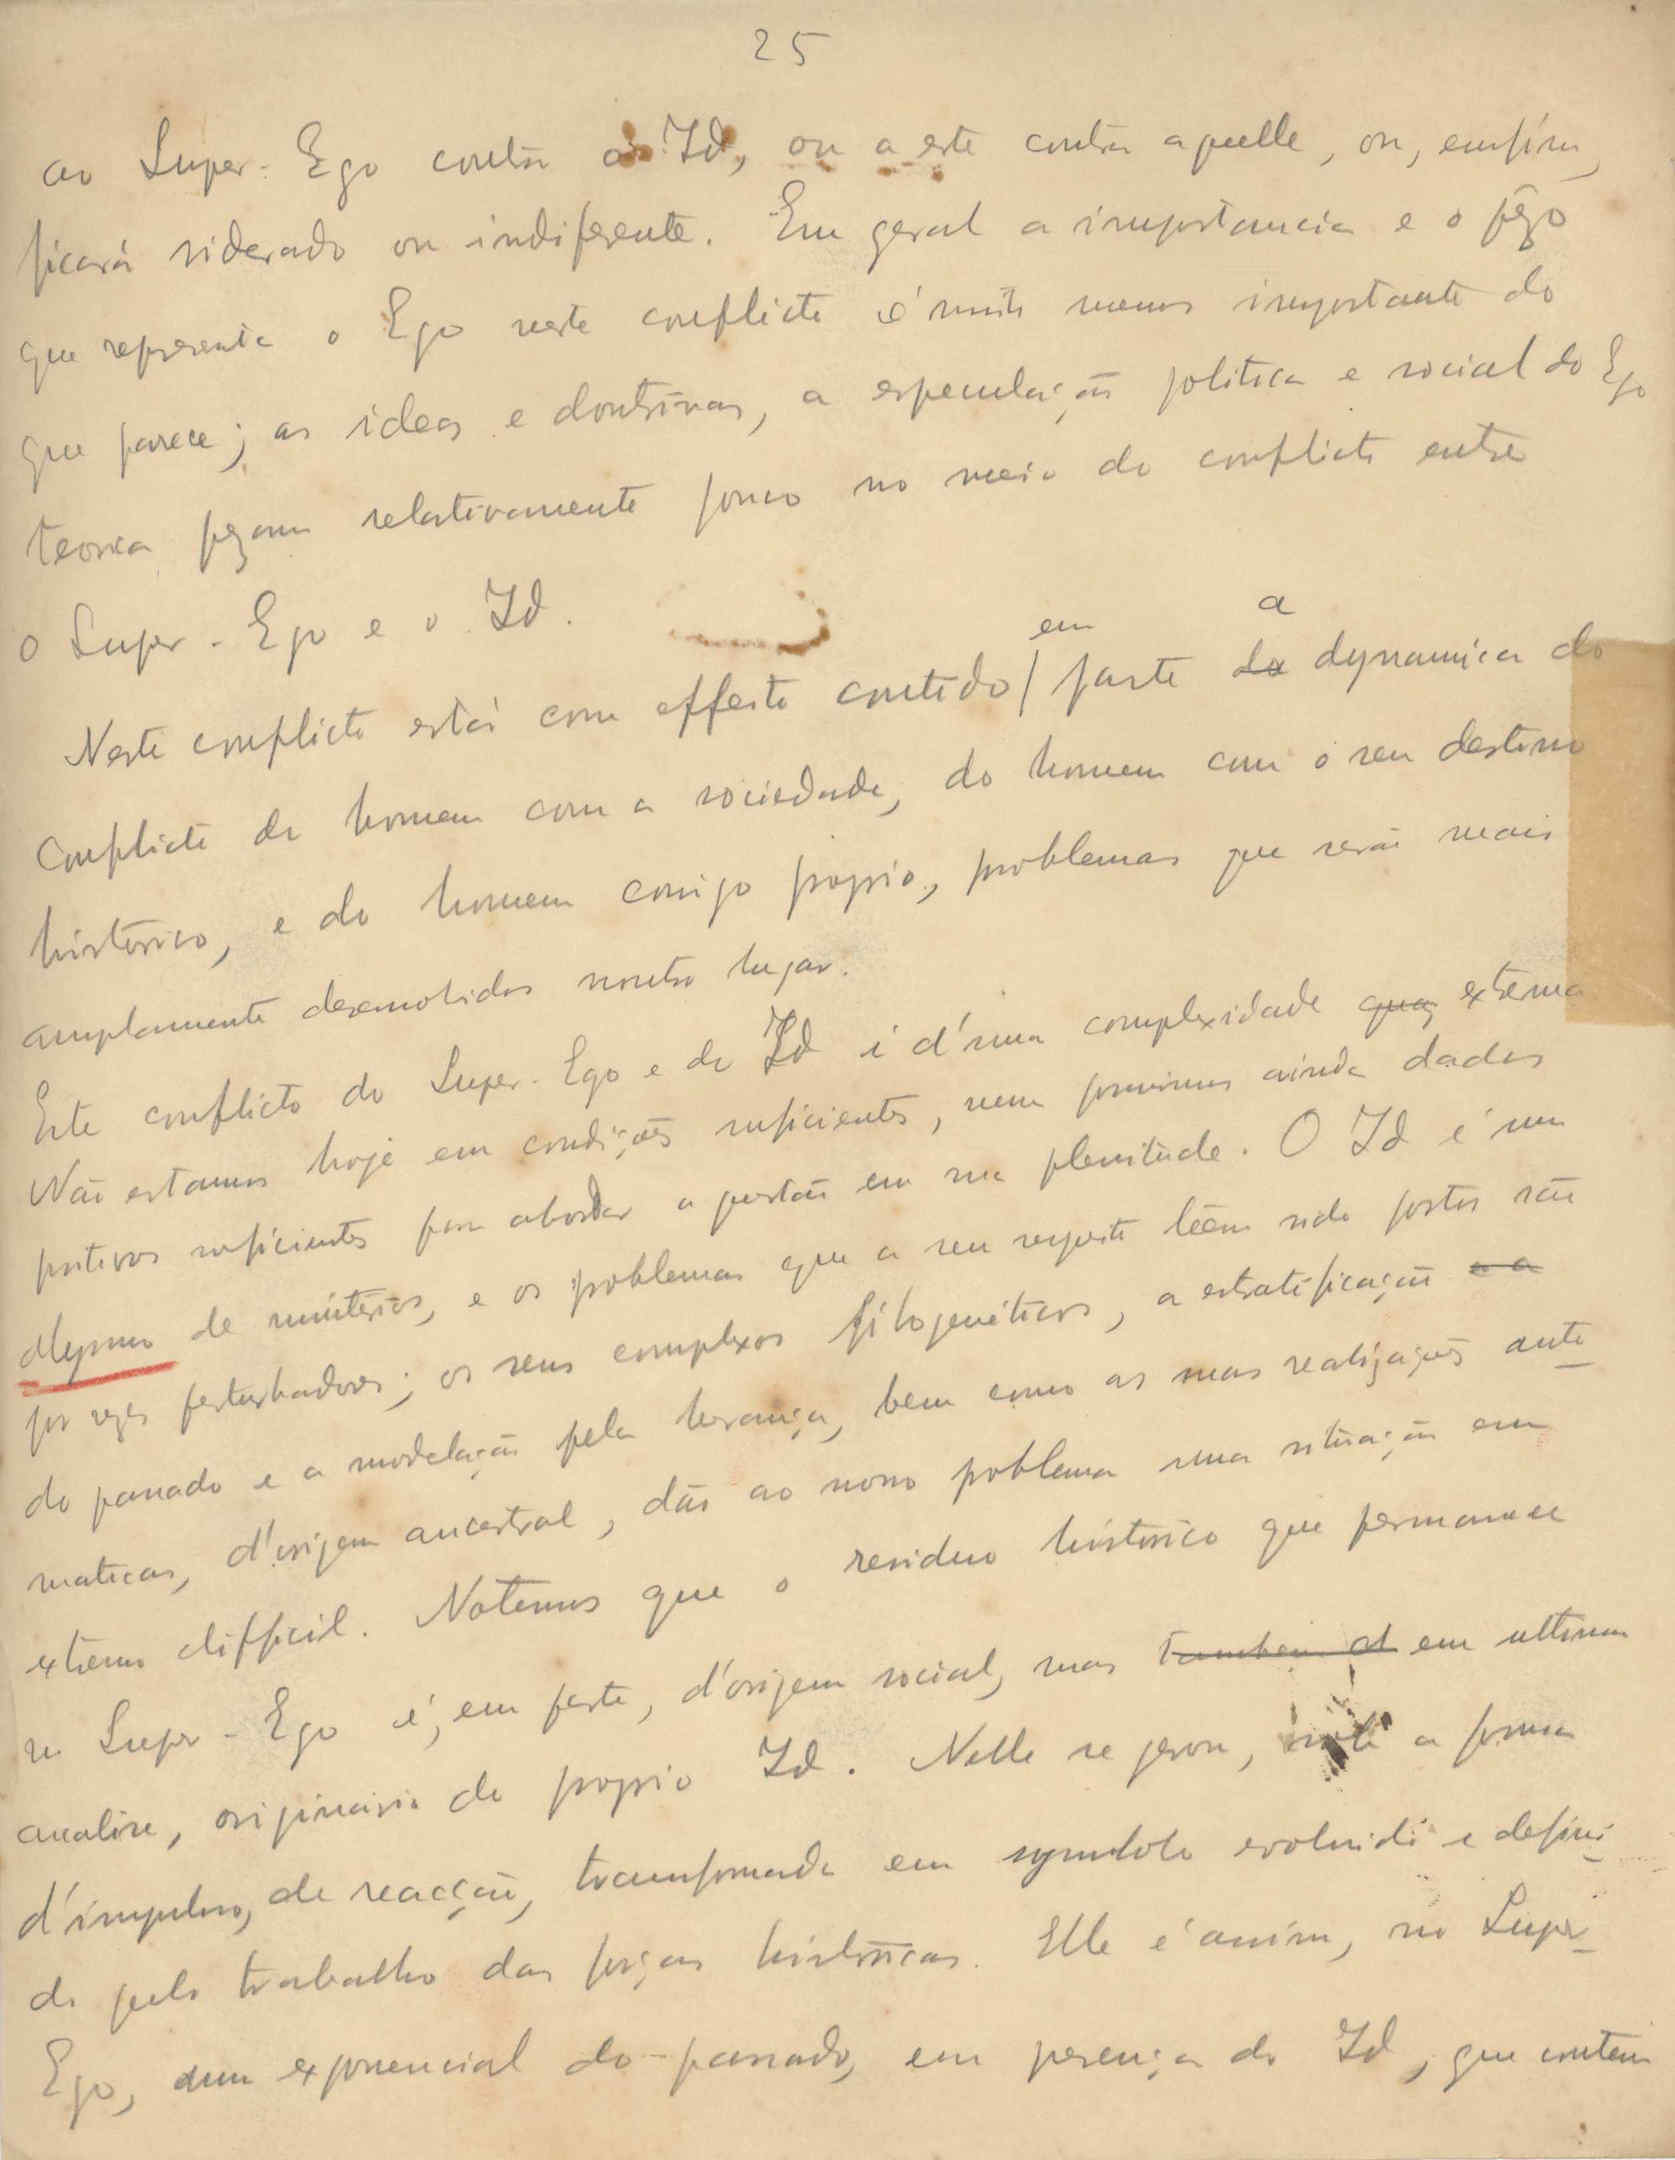 25
ao Super-Ego contra o Id, ou a este contra aquelle, ou, emfim,
ficará siderado ou indiferente. Em geral a importancia e o pêzo
que representa o Ego neste conflicto é muito menos importante do
que parece; as ideas e doutrinas, a especulação politica e social do Ego
teorica pezam relativamente pouco no meio do conflicto entre
o Super-Ego e o Id.
em a
Neste conflicto está com effeito contido / parte da dynamica do
conflicto do homem com a sociedade, do homem com o seu destino
histórico, e do homem comigo proprio, problemas que serão mais
amplamente desenvolvidos noutro lugar.
Este conflicto do Super-Ego e do Id é d'uma complexidade quaz extema
Não estamos hoje em condições suficientes, nem possuimos ainda dados
positivos suficientes para abordar a questão em sua plenitude. O Id é um
abysmo de mistérios, e os problemas que a seu respeito têem sido postos são
por vezes perturbadores; os seus complexos filogenéticos, a estratificação e a
do passado e a modelação pela herança, bem como as suas realizações auto
maticas, d'origem ancestral, dão ao nosso problema uma situação em
extremo difficil. Notemos que o residuo histórico que permanece
no Super-Ego é, em parte, d'origem social, mas tambem d em ultima
analise, originario do proprio Id. Nelle se gerou, sob a forma
d'impulso, de reacção, transformada em symbolo evoluido e defini
do pelo trabalho das forças históricas. Elle é assim, no Super-
Ego, um exponencial do passado, em presença do Id, que contem